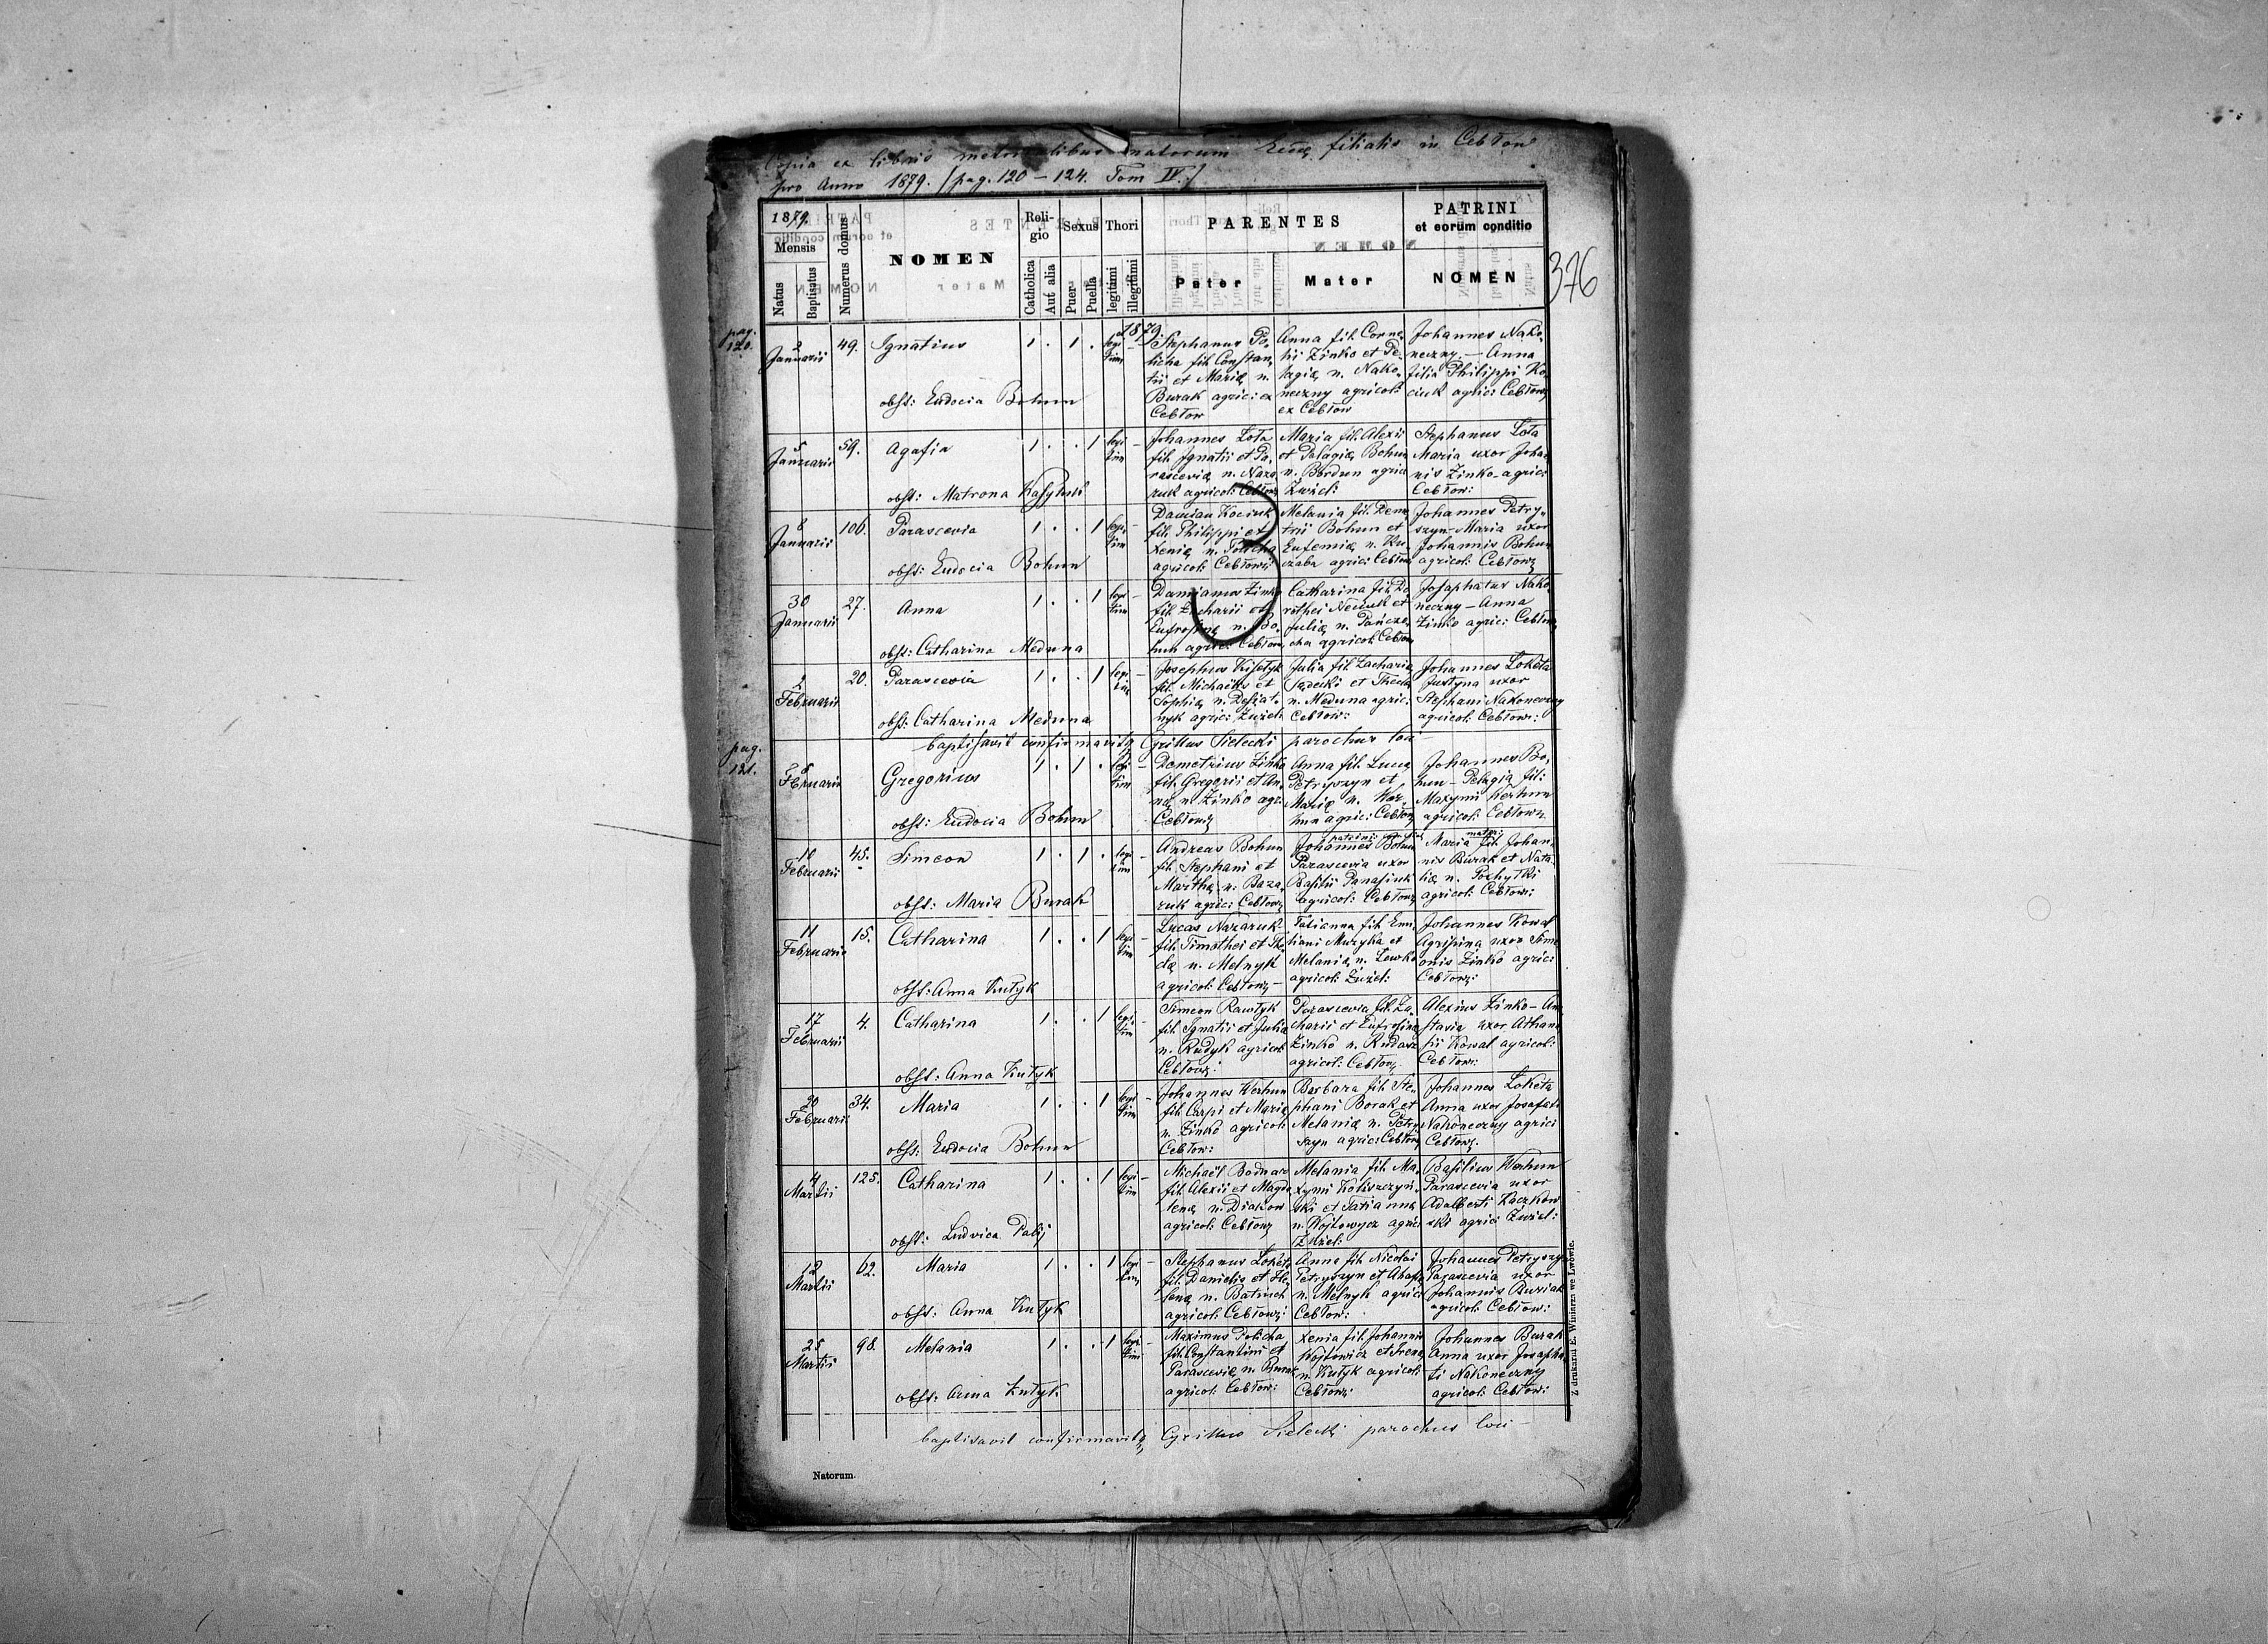 Copia ex libris metricalibus natorum Eccl. filialis in Cebłow
pro Anno 1879. [pag. 120 – 124. Tom IV.]
376
1879.
Mensis
Natus
Baptisatus
Numerus domus
NOMEN
Religio
Catholica
Aut alia
Sexus
Puer
Puella
Thori
legitimi
illegitimi
PARENTES
Pater
Mater
PATRINI
et eorum conditio
NOMEN
1879.
pag.
120.
2
Januarii
49.
Ignatius
1 . 1 .
legi
tim
obst: Eudocia Bohun
Stephanus Po-
licha fil. Constan-
tii et Mariæ n.
Burak agric: ex
Cebłow
Anna fil. Corne-
lii Zinko et Pe-
lagiæ n. Nako-
neczny agricol:
ex Cebłow
Johannes Nako-
neczny – Anna
filia Philippi Ko-
ciuk agric: Cebłow:
5
Januarii
59.
Agafia
1 . . 1
legi
tim
obst: Matrona
Johannes Łota
fil. Ignatii et Pa-
rasceviæ n. Naza-
ruk agricol: Cebłow:
Maria fil. Alexii
et Pelagiæ Bohun
n. Bordun agric:
Żużel:
Stephanus Łota
Maria uxor Johan
nis Zinko agric:
Cebłow:
8
Januarii
106.
Parascevia
1 . . 1
legi
tim
obst: Eudocia Bohun
Damian Kociuk
fil. Philippi et
Xeniæ n. Policha
agricol: Cebłow:
Melania fil. Deme
trii Bohun et
Eufemiæ n. Ku-
czaba agric: Cebłow:
Johannes Petry-
szyn – Maria uxor
Johannis Bohun
agricol: Cebłow:
30
Januarii
27.
Anna
1 . . 1
legi
tim
obst: Catharina Meduna
Damianus Zinko
fil. Zacharii et
Eufrosinæ n. Bo-
hun agric: Cebłow:
Catharina fil. Do
rothei Neciuk et
Juliæ n. Pańcza-
cha agricol: Cebłow:
Josaphatus Nako
neczny – Anna
Zinko agric: Cebłow:
2
Februarii
20.
Parascevia
1 . . 1
legi
tim
obst: Catharina Meduna
Josephus Kisełyk
fil. Michaëlis et
Sophiæ n. Desiat-
nyk agric: Żużel:
Julia fil. Zachariæ
Sadecki et Theclæ
n. Meduna agric:
Cebłow:
Johannes Łokéta
Justyna uxor
Stephani Nakoneczny
agricol: Cebłow:
baptisavit confirmavitq Cyrillus Sielecki parochus loci
pag.
121.
Februarii
Gregorius
1 . 1 .
legi
tim
obst: Eudocia Bohun
Demetrius Zinko
fil. Gregorii et An-
næ n. Zinko agr.
Cebłow:
Anna fil. Lucæ
Petryszyn et
Mariæ n. Wer-
hun agric: Cebłow:
Johannes Bo-
hun – Pelagia fil:
Maxymi Werhun
agricol: Cebłow:
10
Februarii
45.
Simeon
1 . 1 .
legi
tim
obst: Maria Burak
Andreas Bohun
fil. Stephani et
Marthæ n. Baza-
ruk agric: Cebłow:
patrini
Johannes Bohun
Parascevia uxor
Basilii Panasiuk
agricol: Cebłow:
mater:
Maria fil. Johan-
nis Burak et Nata-
liæ n. Pochylki
agricol: Cebłow:
11
Februarii
15.
Catharina
1 . . 1
legi
tim
obst: Anna Kutyk
Lucas Nazaruk
fil. Timothei et The-
clæ n. Melnyk
agricol: Cebłow: –
Tatianna fil. Emi
liani Muzyka et
Melaniæ n. Lewko
agricol: Żużel:
Johannes Kowal
Agripina uxor Sime
onis Zinko agric:
Cebłow:
17
Februarii
4.
Catharina
1 . . 1
legi
tim
obst: Anna Kutyk
Simeon Rawłyk
fil. Ignatii et Juliæ
n. Rudyk agricol
Cebłow:
Parascevia fil. Za-
charii et Eufrosinæ
Zinko n. Rudasz
agricol: Cebłow:
Alexius Zinko – Ana
stasia uxor Athana
sii Kowal agricol:
Cebłow:
20
Februarii
34.
Maria
1 . . 1
legi
tim
obst: Eudocia Bohun
Johannes Werhun
fil. Carpi et Mariæ
n. Zinko agricol:
Cebłow:
Barbara fil. Ste-
phani Borak et
Melaniæ n. Petry-
szyn agric: Cebłow:
Johannes Łokéta
Anna uxor Josafati
Nakoneczny agric:
Cebłow:
4
Martii
125.
Catharina
1 . . 1
legi
tim
obst: Ludvica Palij
Michaël Bodnar
fil. Alexii et Magda
lenæ n. Diakow
agricol: Cebłow:
Melania fil. Ma-
xymi Koliszczyń-
ski et Tatiannæ
n. Wojtowycz agric:
Żużel:
Basilius Werhun
Parascevia uxor
Adalberti Kaczkow
ski agric: Żużel:
12
Martii
62.
Maria
1 . . 1
legi
tim
obst: Anna Kutyk
Stephanus Łokéta
fil. Danielis et He-
lenæ n. Batiuch
agricol: Cebłow:
Anna fil. Nicolai
Petryszyn et Ahafiæ
n. Melnyk agric:
Cebłow:
Johannes Petryszyn
Parascevia uxor
Johannis Rusiak
agricol: Cebłow:
25
Martii
98.
Melania
1 . . 1
legi
tim
obst: Anna Kutyk
Maximus Policha
fil. Constantini et
Parasceviæ n. Burak
agricol: Cebłow:
Xenia fil. Johannis
Wojtowicz et Irenæ
n. Kutyk agricol:
Cebłow:
Johannes Burak
Anna uxor Josapha
ti Nakoneczny
agricol: Cebłow:
baptisavit confirmavitq Cyrillus Sielecki parochus loci
Natorum.
Z drukarni E. Winiarza we Lwowie.
3